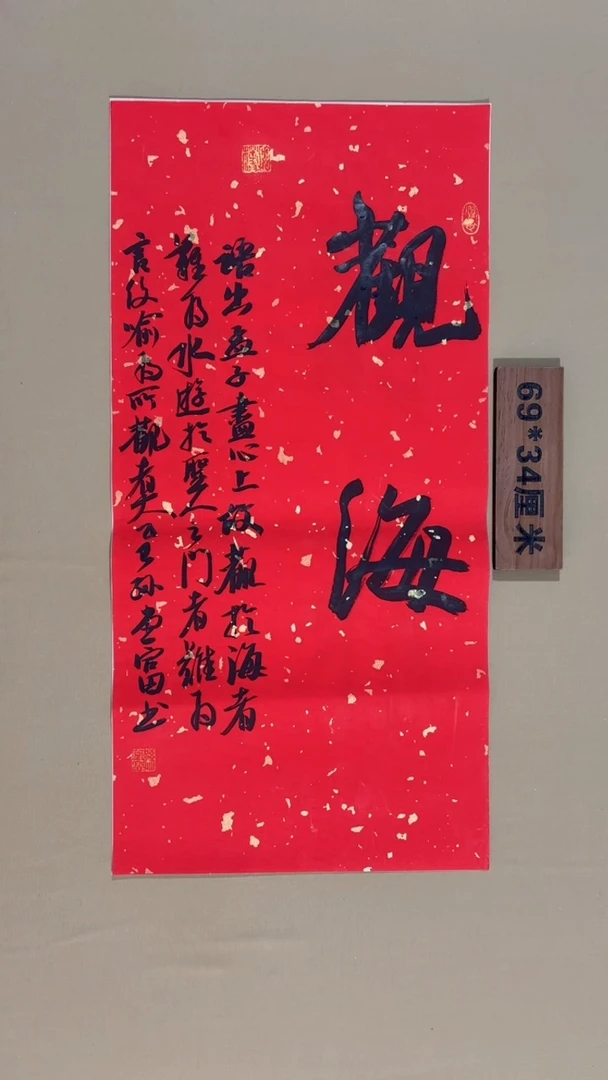 觀海
語出孟子盡心上故觀於海者
難為水遊於聖人之門者難為
言後喻為所觀者大 孫 富書
69*34厘米